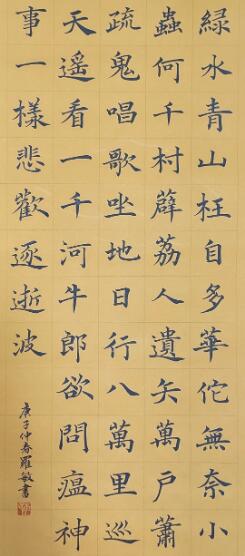 緑水青山枉自多華佗無奈小
蟲何千村薜荔人遺矢萬戶蕭
疏鬼唱歌坐地日行八萬里巡
天遥看一千河牛郎欲問瘟神
事一樣悲歡逐逝波
庚子仲春羅敏書